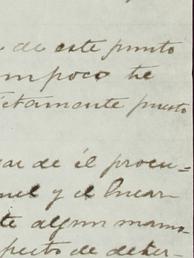 de este punto
mpoco he
ctamente puesto
ar de él procu=
nel y el Encar
te algun mamo
specto de deter-